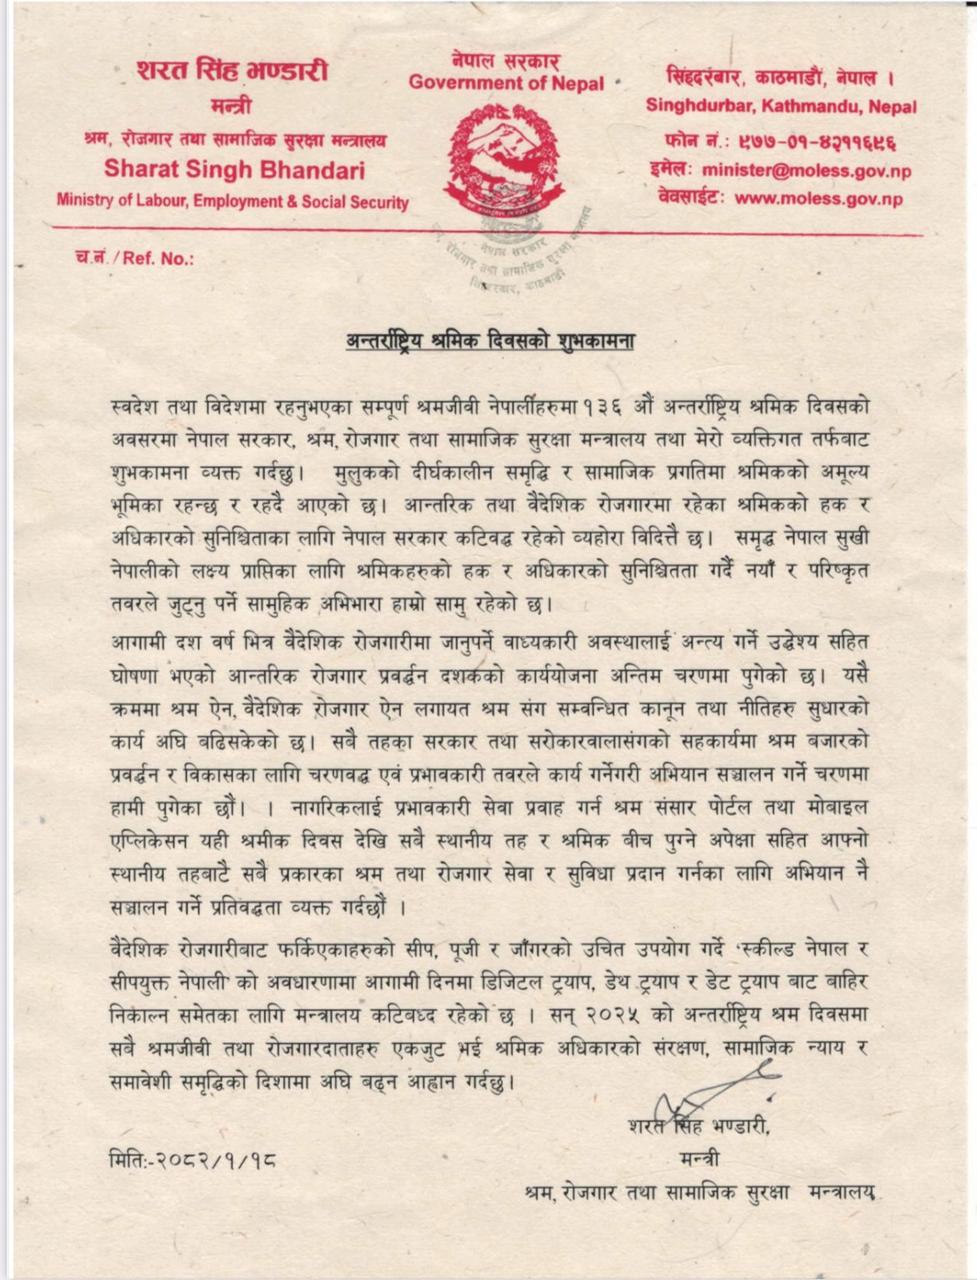 शरत सिंह भण्डारी
मन्त्री
श्रम, रोजगार तथा सामाजिक सुरक्षा मन्त्रालय
Sharat Singh Bhandari
Ministry of Labour, Employment & Social Security
नेपाल सरकार
Government of Nepal
सिंहदरबार, काठमाडौं, नेपाल ।
Singhdurbar, Kathmandu, Nepal
फोन नं.: ९७७-०१-४२११६९६
इमेल: minister@moless.gov.np
वेवसाईट: www.moless.gov.np
नेपाल सरकार
श्रम, रोजगार तथा सामाजिक सुरक्षा मन्त्रालय
सिंहदरबार, काठमाडौं
च.नं. / Ref. No.:
अन्तर्राष्ट्रिय श्रमिक दिवसको शुभकामना
स्वदेश तथा विदेशमा रहनुभएका सम्पूर्ण श्रमजीवी नेपालीहरुमा १३६ औं अन्तर्राष्ट्रिय श्रमिक दिवसको
अवसरमा नेपाल सरकार, श्रम, रोजगार तथा सामाजिक सुरक्षा मन्त्रालय तथा मेरो व्यक्तिगत तर्फबाट
शुभकामना व्यक्त गर्दछु। मुलुकको दीर्घकालीन समृद्धि र सामाजिक प्रगतिमा श्रमिकको अमूल्य
भूमिका रहन्छ र रहदै आएको छ। आन्तरिक तथा वैदेशिक रोजगारमा रहेका श्रमिकको हक र
अधिकारको सुनिश्चितताका लागि नेपाल सरकार कटिवद्ध रहेको व्यहोरा विदित्तै छ। समृद्ध नेपाल सुखी
नेपालीको लक्ष्य प्राप्तिका लागि श्रमिकहरुको हक र अधिकारको सुनिश्चितता गर्दै नयाँ र परिष्कृत
तवरले जुट्नु पर्ने सामुहिक अभिभारा हाम्रो सामु रहेको छ।
आगामी दश वर्ष भित्र वैदेशिक रोजगारीमा जानुपर्ने वाध्यकारी अवस्थालाई अन्त्य गर्ने उद्धेश्य सहित
घोषणा भएको आन्तरिक रोजगार प्रवर्द्धन दशकको कार्ययोजना अन्तिम चरणमा पुगेको छ। यसै
क्रममा श्रम ऐन, वैदेशिक रोजगार ऐन लगायत श्रम संग सम्वन्धित कानून तथा नीतिहरु सुधारको
कार्य अघि बढिसकेको छ। सबै तहका सरकार तथा सरोकारवालासंगको सहकार्यमा श्रम बजारको
प्रवर्द्धन र विकासका लागि चरणवद्ध एवं प्रभावकारी तवरले कार्य गर्नेगरी अभियान सञ्चालन गर्ने चरणमा
हामी पुगेका छौं। । नागरिकलाई प्रभावकारी सेवा प्रवाह गर्न श्रम संसार पोर्टल तथा मोबाइल
एप्लिकेसन यही श्रमीक दिवस देखि सबै स्थानीय तह र श्रमिक बीच पुग्ने अपेक्षा सहित आफ्नो
स्थानीय तहबाटै सबै प्रकारका श्रम तथा रोजगार सेवा र सुविधा प्रदान गर्नका लागि अभियान नै
सञ्चालन गर्ने प्रतिवद्धता व्यक्त गर्दछौं ।
वैदेशिक रोजगारीबाट फर्किएकाहरुको सीप, पूजी र जाँगरको उचित उपयोग गर्दे 'स्कील्ड नेपाल र
सीपयुक्त नेपाली' को अवधारणामा आगामी दिनमा डिजिटल ट्र्याप, डेथ ट्र्याप र डेट ट्र्याप बाट बाहिर
निकाल्न समेतका लागि मन्त्रालय कटिबध्द रहेको छ । सन् २०२५ को अन्तर्राष्ट्रिय श्रम दिवसमा
सबै श्रमजीवी तथा रोजगारदाताहरु एकजुट भई श्रमिक अधिकारको संरक्षण, सामाजिक न्याय र
समावेशी समृद्धिको दिशामा अघि बढ्न आह्वान गर्दछु।
शरत सिंह भण्डारी,
मिति:-२०८२/१/१८
मन्त्री
श्रम, रोजगार तथा सामाजिक सुरक्षा मन्त्रालय